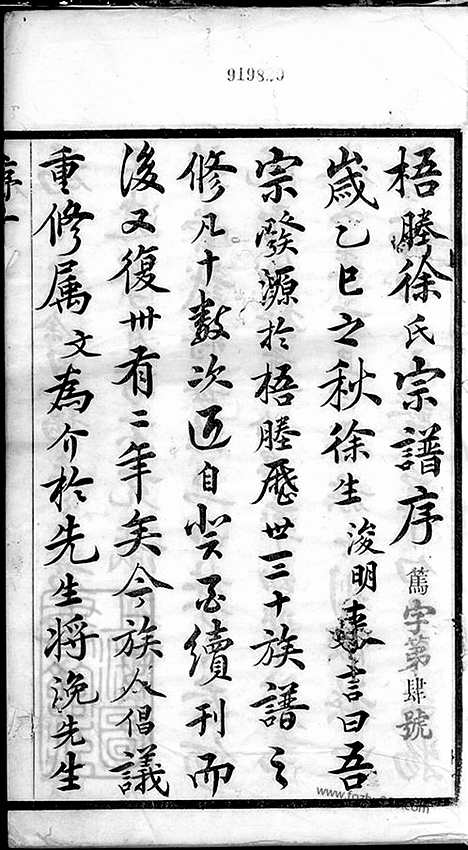 919820
梧塍徐氏宗譜序
篤字第肆號
歲乙巳之秋徐生浚明來言曰吾
宗發源於梧塍歷世三十族譜之
修凡十數次迈自癸酉續刊而
後又復卅有二年矣今族人倡議
重修属文為介於先生將浼先生
序一